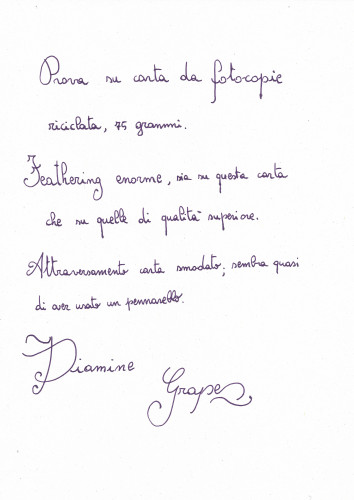 Prova su carta da fotocopie
riciclata, 75 grammi.
Feathering enorme, sia su questa carta
che su quelle di qualità superiore.
Attraversamento carta smodato; sembra quasi
di aver usato un pennarello.
Diamine
Grape